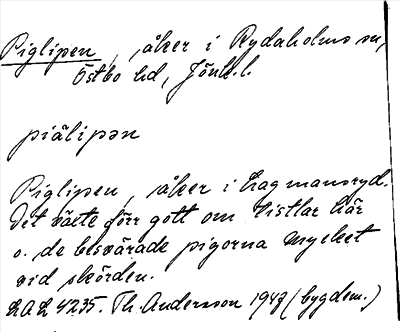 Piglipen, åker i Rydaholms sn,
Östbo hd, Jönk. l.
piälipən
Piglipen, åker i Hagmansryd.
Det växte förr gott om tistlar här
o. de besvärade pigorna mycket
vid skörden.
LAL 4235. Th. Andersson 1947 (bygdem.)